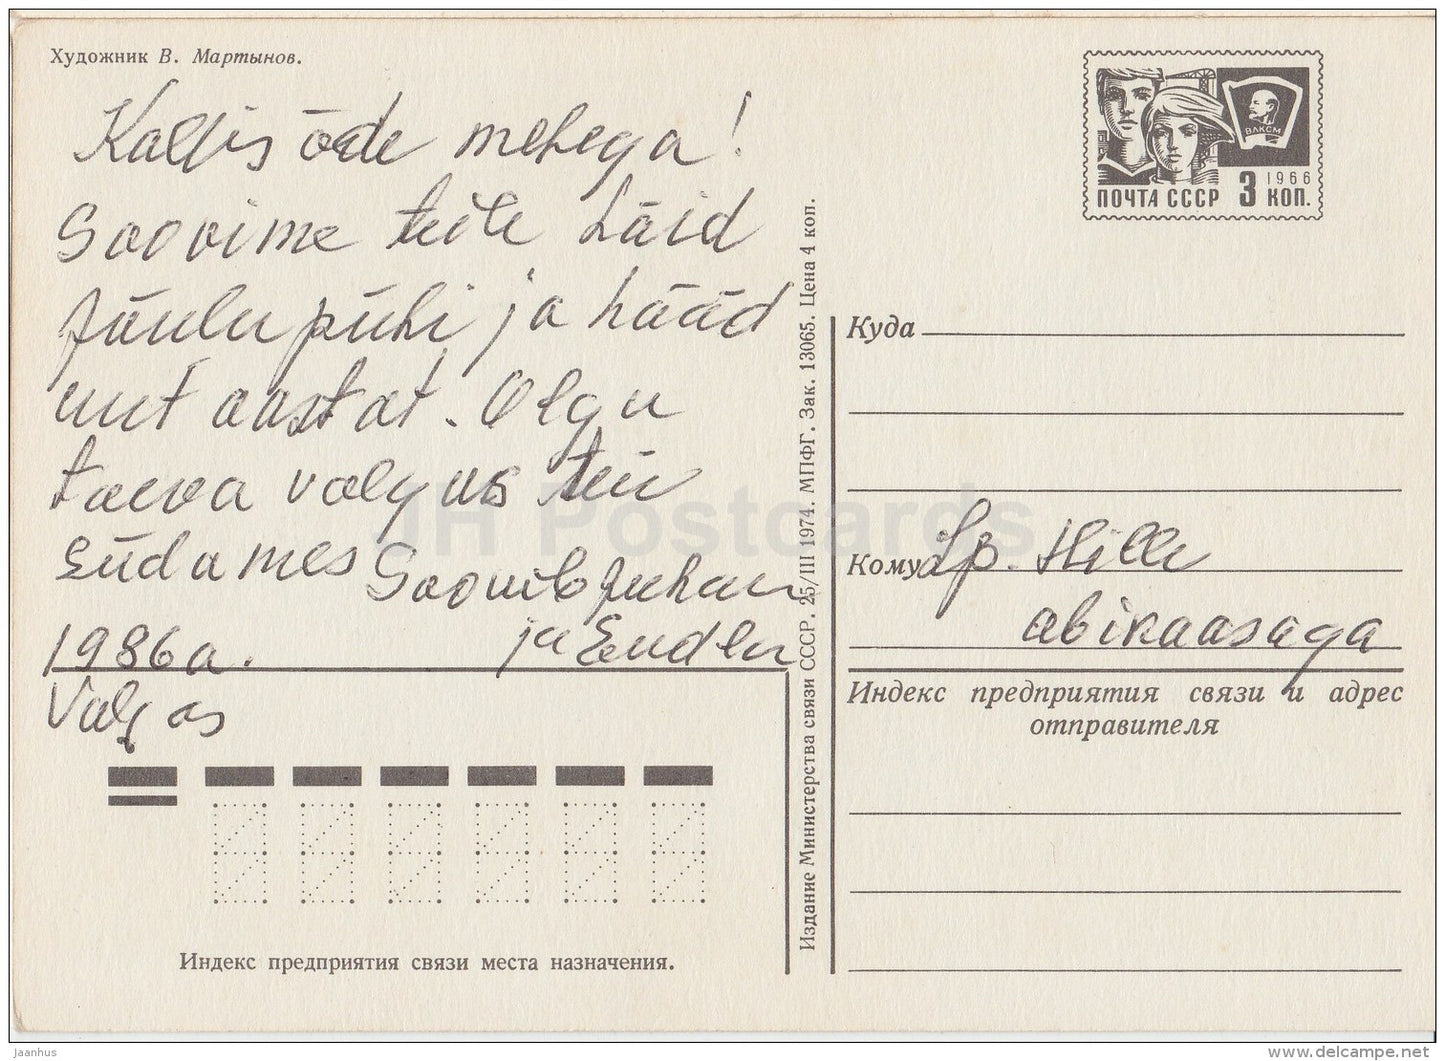 Художник В. Мартынов.
Kallis õde mehega!
Soovime teile häid
jõulupühi ja hääd
uut aastat. Olgu
taeva valgus teie
südames Soovib Juhan
1986 a. ja Endla
Valgas
ПОЧТА СССР 3 КОП. 1966
ВЛКСМ
Издание Министерства связи СССР. 25/III 1974. МПФГ. Зак. 13065. Цена 4 коп.
Куда
Кому Lp. Hille
abikaasaga
Индекс предприятия связи и адрес
отправителя
Индекс предприятия связи места назначения.
JH Postcards
jaanhus
www.delcampe.net